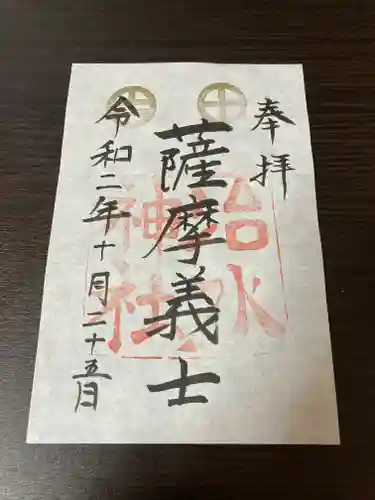 奉拝
薩摩義士
令和二年十月二十五日
治水
神社